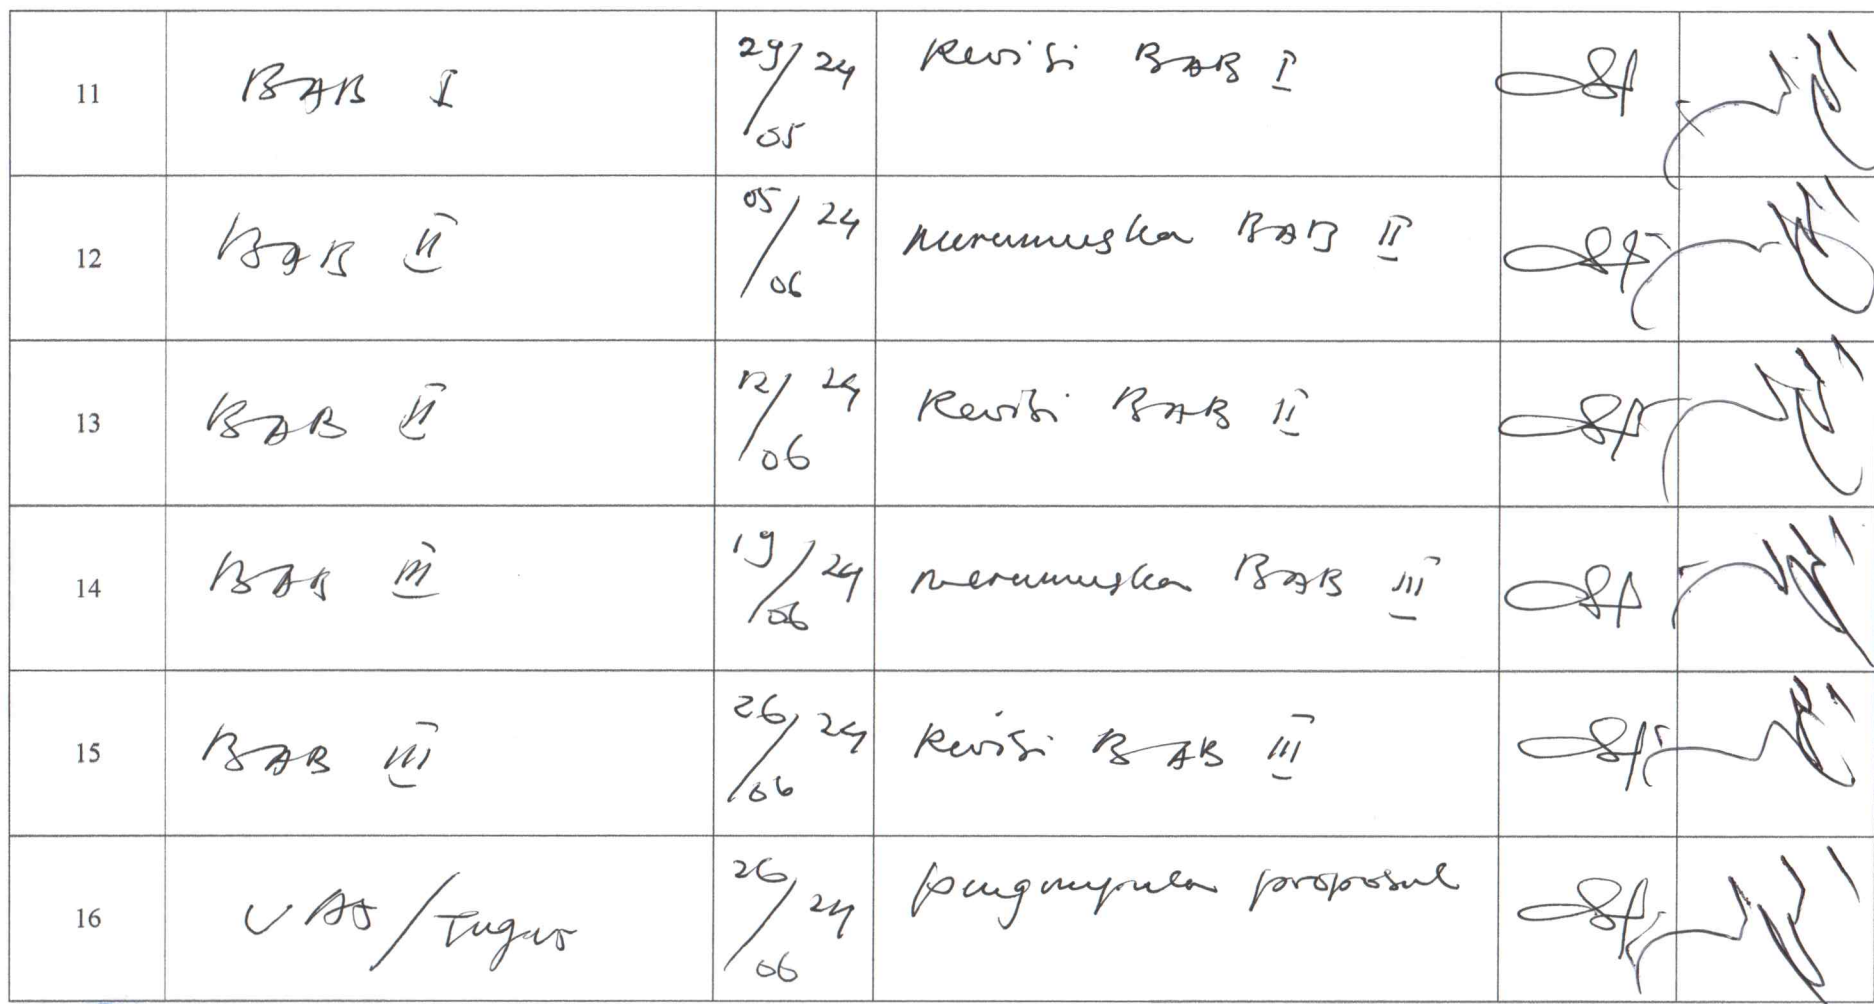 11 BAB I 29/05 24 Revisi BAB I
12 BAB II 05/06 24 merumuska BAB II
13 BAB II 12/06 24 Revisi BAB II
14 BAB III 19/06 24 merumuska BAB III
15 BAB III 26/06 24 Revisi BAB III
16 UAS/Tugas 26/06 24 pengumpula proposal